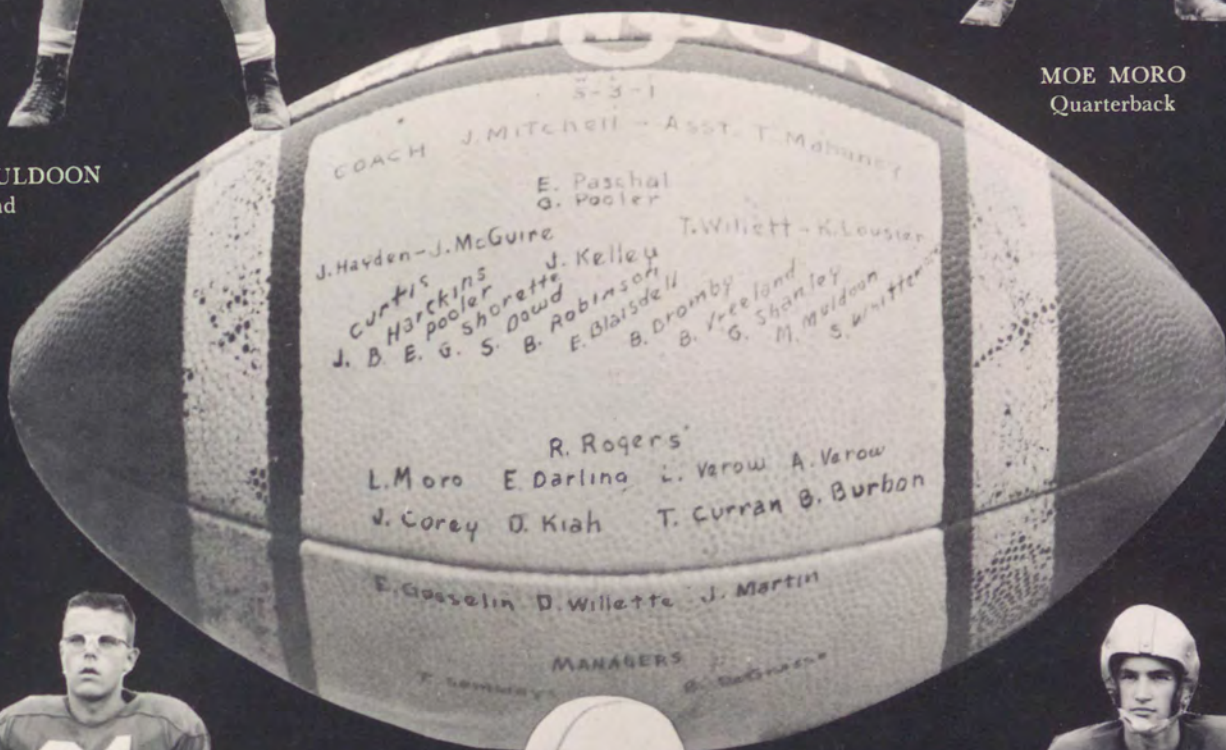 MOE MORO
Quarterback
ULDOON
nd
W-L-T
5-3-1
COACH J. MITCHELL - ASST. T. Mahaney
E. Paschal
G. Pooler
J. Hayden - J. McGuire T. Willett - K. Lousier
J. Curtis
B. Harckins
E. Pooler
G. Shorette
J. Kelley
S. Dowd
B. Robinson
E. Blaisdell
B. Bromby
B. Vreeland
G. Shanley
M. Muldoon
S. Whittier
R. Rogers
L. Moro E. Darling L. Verow A. Verow
J. Corey D. Kiah T. Curran B. Burbon
E. Gosselin D. Willette J. Martin
MANAGERS